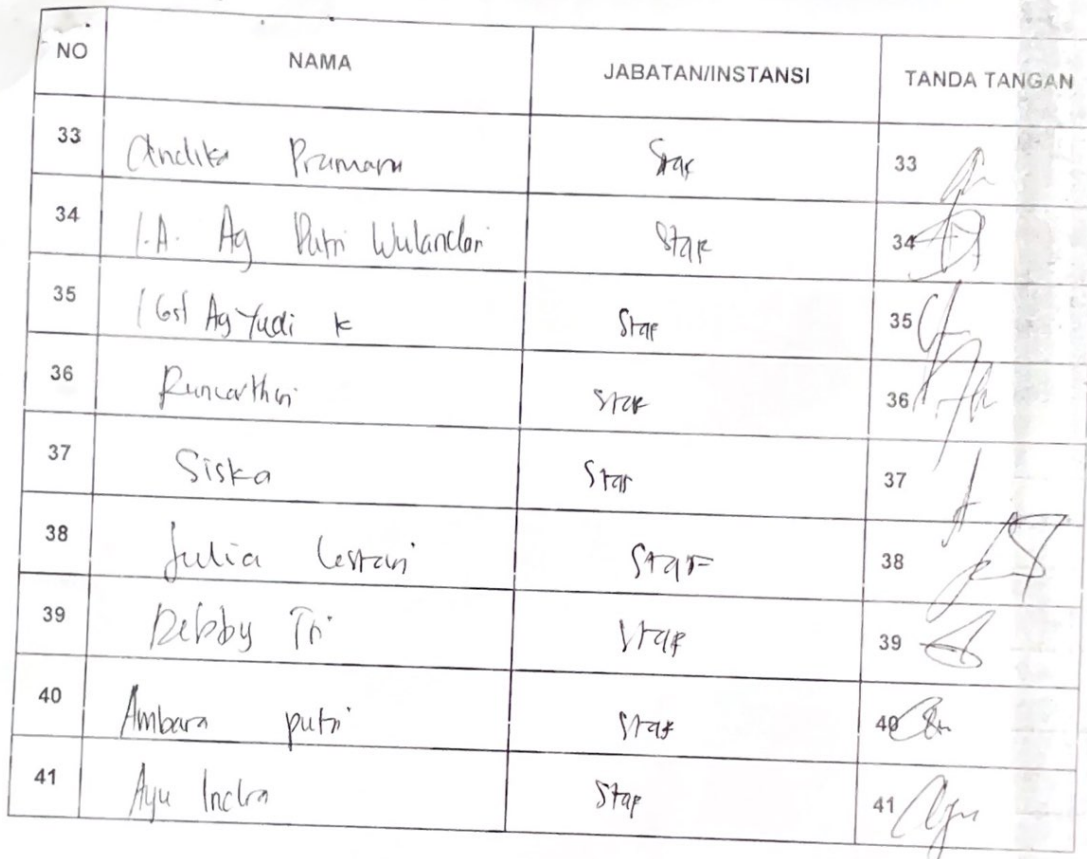 NO NAMA JABATAN/INSTANSI TANDA TANGAN
33 Andika Pramana Staf 33
34 I.A. Ag Putri Wulandari Staf 34
35 I Gst Ag Yudi K Staf 35
36 Staf 36
37 Siska Staf 37
38 Julia Lestari Staf 38
39 Debby Tri Staf 39
40 Ambara putri Staf 40
41 Ayu Indra Staf 41